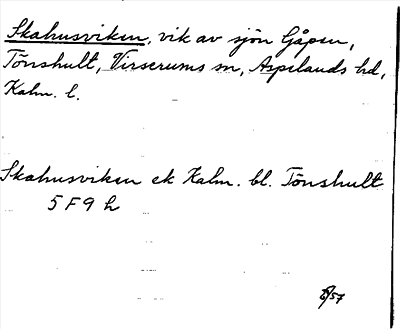 Skahusviken, vik av sjön Gåpen,
Tönshult, Virserums sn, Aspelands hd,
Kalm. l.
Skahusviken ek Kalm. bl. Tönshult
5 F 9 h
/57